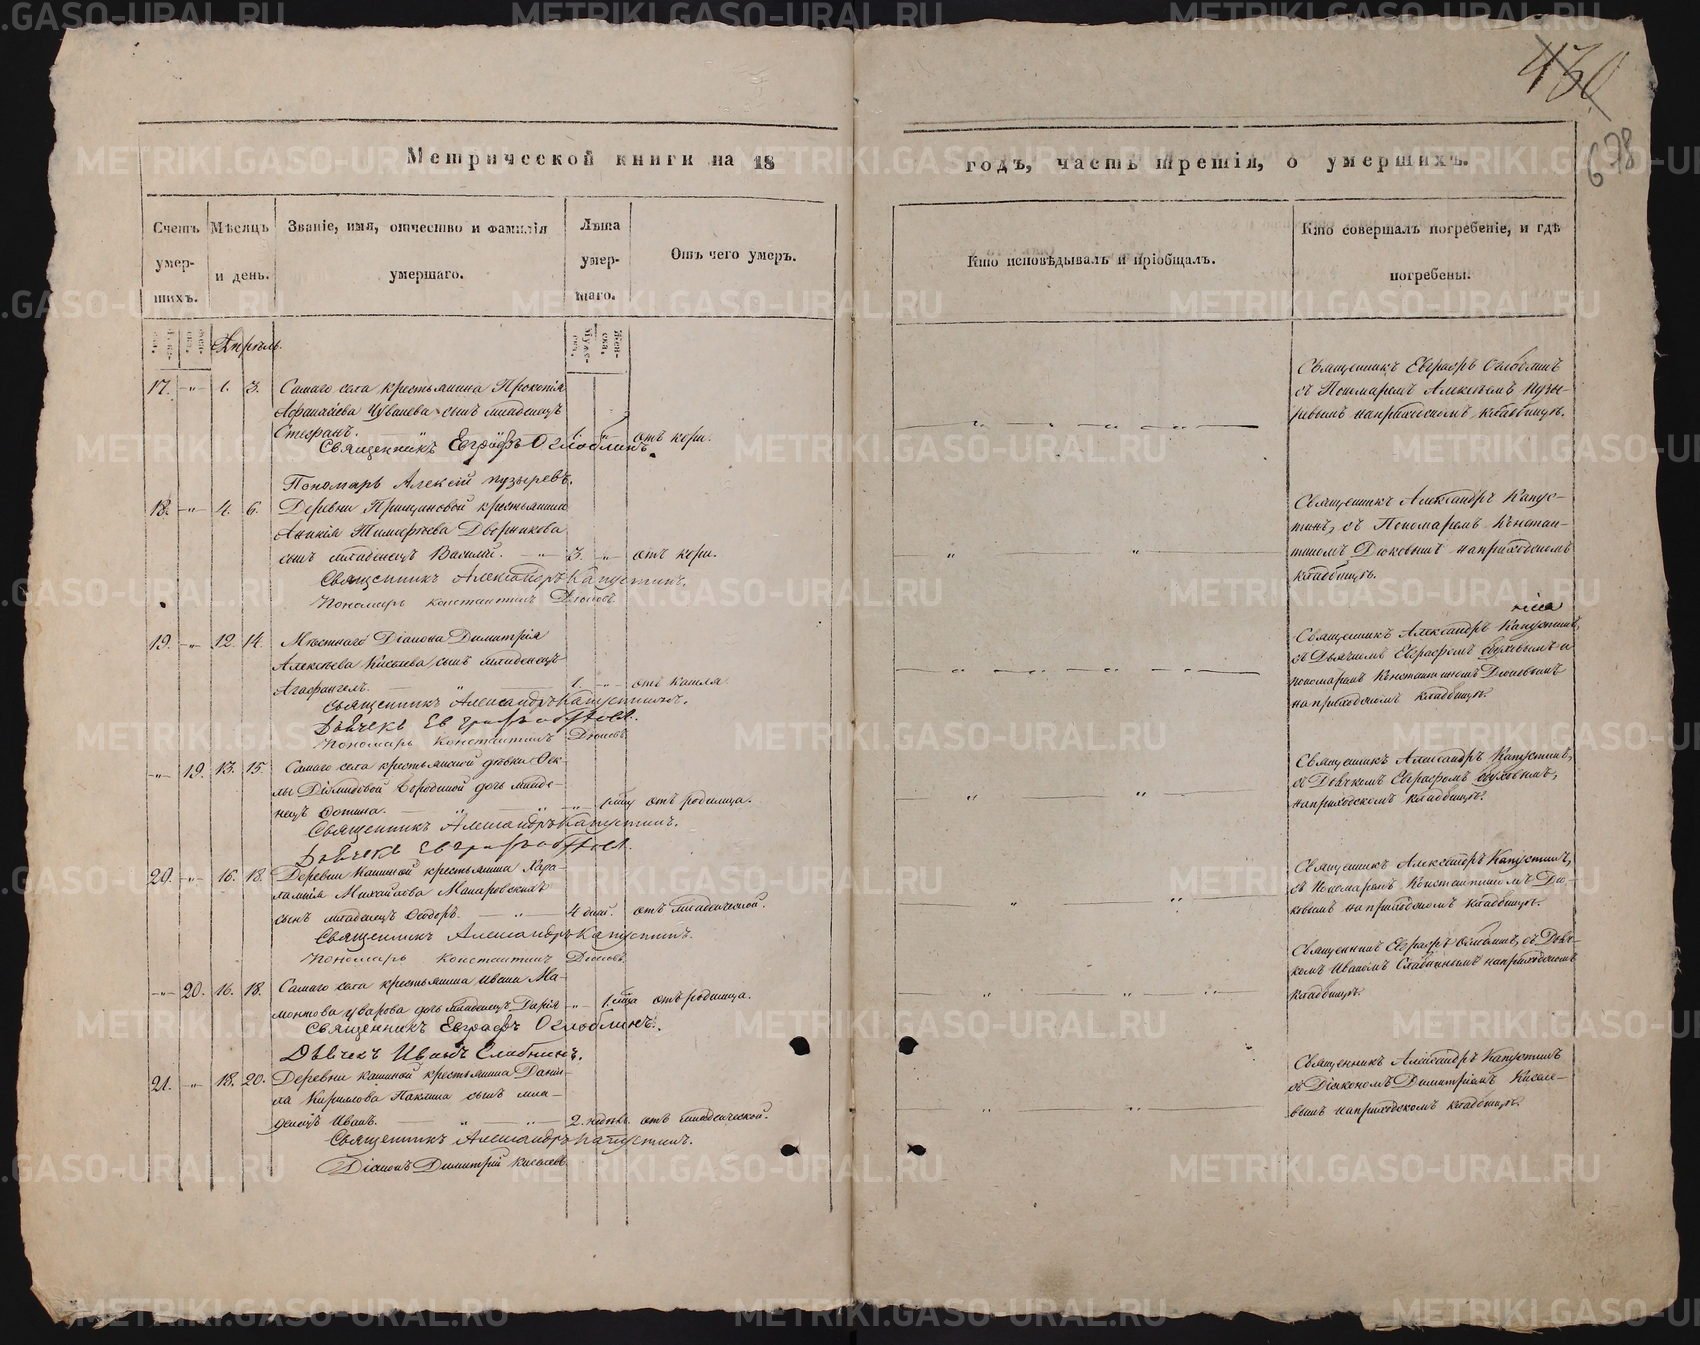 430
678
Метрической книги на 18
годъ, часть третія, о умершихъ.
Счетъ умер-
шихъ.
Мѣсяцъ
и день.
Званіе, имя, отчество и фамилія
умершаго.
Лѣта
умер-
шаго.
Отъ чего умеръ.
Кто исповѣдывалъ и пріобщалъ.
Кто совершалъ погребеніе, и гдѣ
погребены.
Апрѣль.
17. „ 1. 3. Самаго села крестьянина Прокопія
Афанасіева Чувашева сынъ младенецъ
Стефанъ. 1. „ отъ кори.
Священникъ Евграфъ Оглоблинъ.
Пономарь Алексій Пузыревъ.
Священникъ Евграфъ Оглоблинъ
съ Пономаремъ Алексѣемъ Пузы-
ревымъ на приходскомъ кладбищѣ.
18. „ 4. 6. Деревни крестьянина
Ананія Тимофѣева Дворникова
сынъ младенецъ Василій. „ 3. „ отъ кори.
Священникъ Александръ Капустинъ.
Пономарь Константинъ Дюковъ.
Священникъ Александръ Капус-
тинъ, съ Пономаремъ Констан-
тиномъ Дюковымъ на приходскомъ
кладбищѣ.
19. „ 12. 14. Мѣстнаго Діакона Димитрія
Алексѣева Киселева сынъ младенецъ
Агафангелъ. „ 1. „ отъ кашля.
Священникъ Александръ Капустинъ.
Дьячекъ Евграфъ
Пономарь Константинъ Дюковъ.
Священникъ Александръ Капустинъ,
съ Дьячкомъ Евграфомъ и
пономаремъ Константиномъ Дюковымъ
на приходскомъ кладбищѣ.
„ 19. 13. 15. Самаго села крестьянской дѣвки Ѳек-
лы Бородиной дочь младе-
нецъ Фотина. „ „ „ 1 мца отъ родимца.
Священникъ Александръ Капустинъ.
Дьячекъ Евграфъ
Священникъ Александръ Капустинъ,
съ Дьячкомъ Евграфомъ
на приходскомъ кладбищѣ.
20. „ 16. 18. Деревни Кашиной крестьянина Хара-
лампія Михайлова Макаровскихъ
сынъ младенецъ Ѳеодоръ. „ 4 дней. отъ младенческой.
Священникъ Александръ Капустинъ.
Пономарь Константинъ Дюковъ.
Священникъ Александръ Капустинъ,
съ Пономаремъ Константиномъ Дю-
ковымъ на приходскомъ кладбищѣ.
„ 20. 16. 18. Самаго села крестьянина Ивана Ма-
монтова Уварова дочь младенецъ Дарія „ 1. мца отъ родимца.
Священникъ Евграфъ Оглоблинъ.
Дьячекъ Иванъ Славнинъ.
Священникъ Евграфъ Оглоблинъ, съ Дьяч-
комъ Иваномъ Славнинымъ на приходскомъ
кладбищѣ.
21. „ 18. 20. Деревни Кашиной крестьянина Дани-
ла Кирилова Паклина сынъ мла-
денецъ Иванъ. „ „ 2. недѣль. отъ младенческой.
Священникъ Александръ Капустинъ.
Діаконъ Димитрій Киселевъ.
Священникъ Александръ Капустинъ
съ Діакономъ Димитріемъ Киселе-
вымъ на приходскомъ кладбищѣ.
METRIKI.GASO-URAL.RU